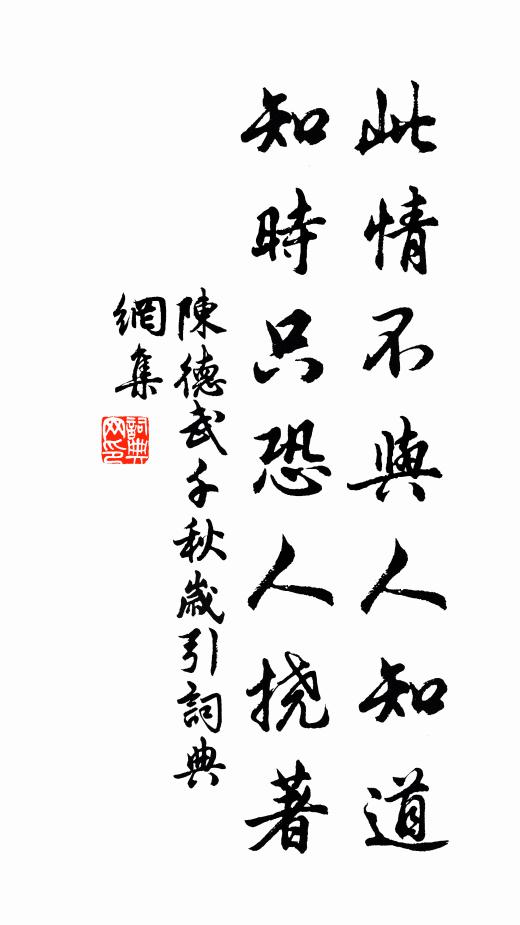 此情不與人知道
知時只恐人撓著
陳德武千秋歲引詞典
網集
詞典
网印